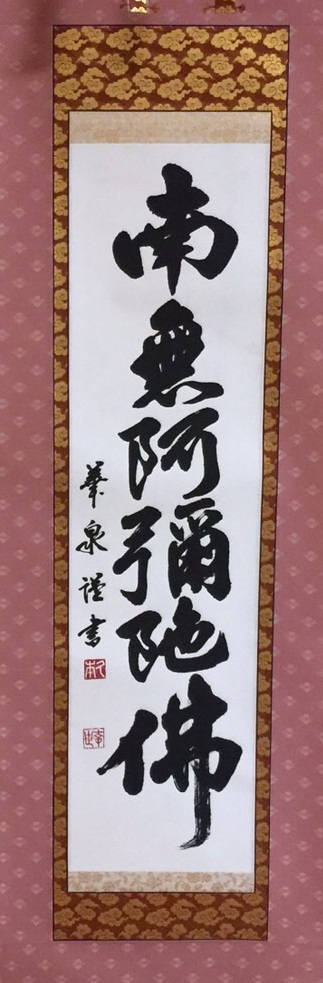 南無阿彌陀佛
華泉謹書